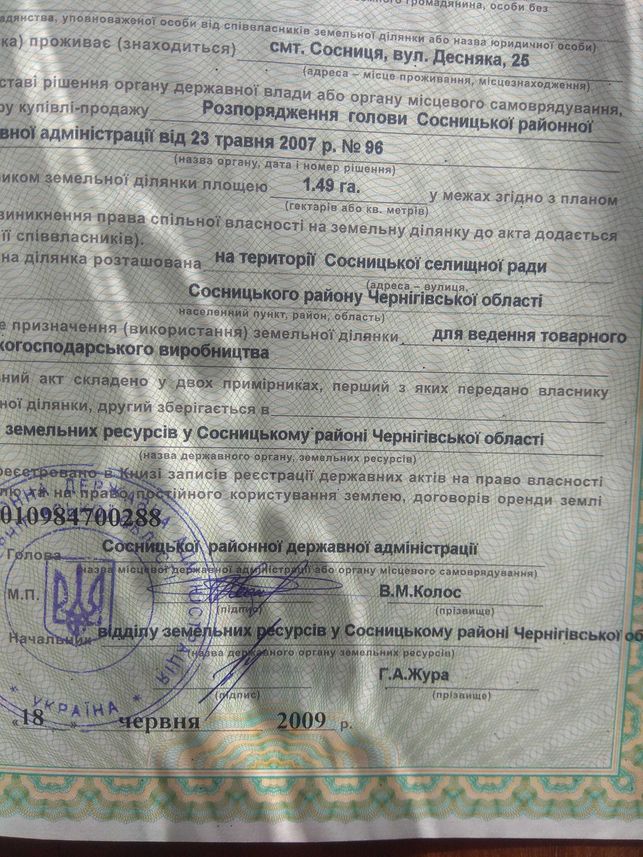 громадянина, особи без
уповноваженої особи від співвласників земельної ділянки або назва юридичної особи)
проживає (знаходиться) смт. Сосниця, вул. Десняка, 25
(адреса – місце проживання, місцезнаходження)
ставі рішення органу державної влади або органу місцевого самоврядування,
ру купівлі-продажу Розпорядження голови Сосницької районної
вної адміністрації від 23 травня 2007 р. № 96
(назва органу, дата і номер рішення)
ником земельної ділянки площею 1.49 га. у межах згідно з планом
(гектарів або кв. метрів)
виникнення права спільної власності на земельну ділянку до акта додається
її співвласників).
на ділянка розташована на території Сосницької селищної ради
(адреса – вулиця,
Сосницького району Чернігівської області
населенний пункт, район, область)
е призначення (використання) земельної ділянки для ведення товарного
когосподарського виробництва
ний акт складено у двох примірниках, перший з яких передано власнику
ної ділянки, другий зберігається в
земельних ресурсів у Сосницькому районі Чернігівської області
(назва державного органу, земельних ресурсів)
реєстровано в Книзі записів реєстрації державних актів на право власності
та на право постійного користування землею, договорів оренди землі
010984700288
Голова Сосницької районної державної адміністрації
назва місцевої державної адміністрації або органу місцевого самоврядування)
М.П. В.М.Колос
(підпис) (прізвище)
Начальник відділу земельних ресурсів у Сосницькому районі Чернігівської об
(назва державного органу земельних ресурсів)
Г.А.Жура
(підпис) (прізвище)
* УКРАЇНА *
«18 » червня 2009 р.